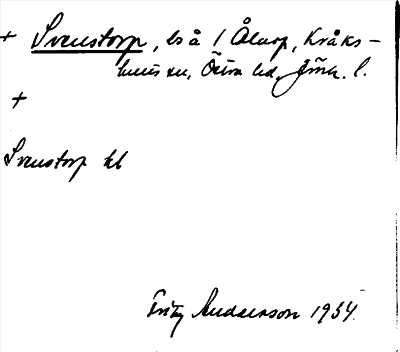 + Svenstorp, bs å 1 Ålarp, Kråks-
hults sn, Östra hd, Jönk. l.
+
Svenstorp kl
Fritz Andersson 1934.